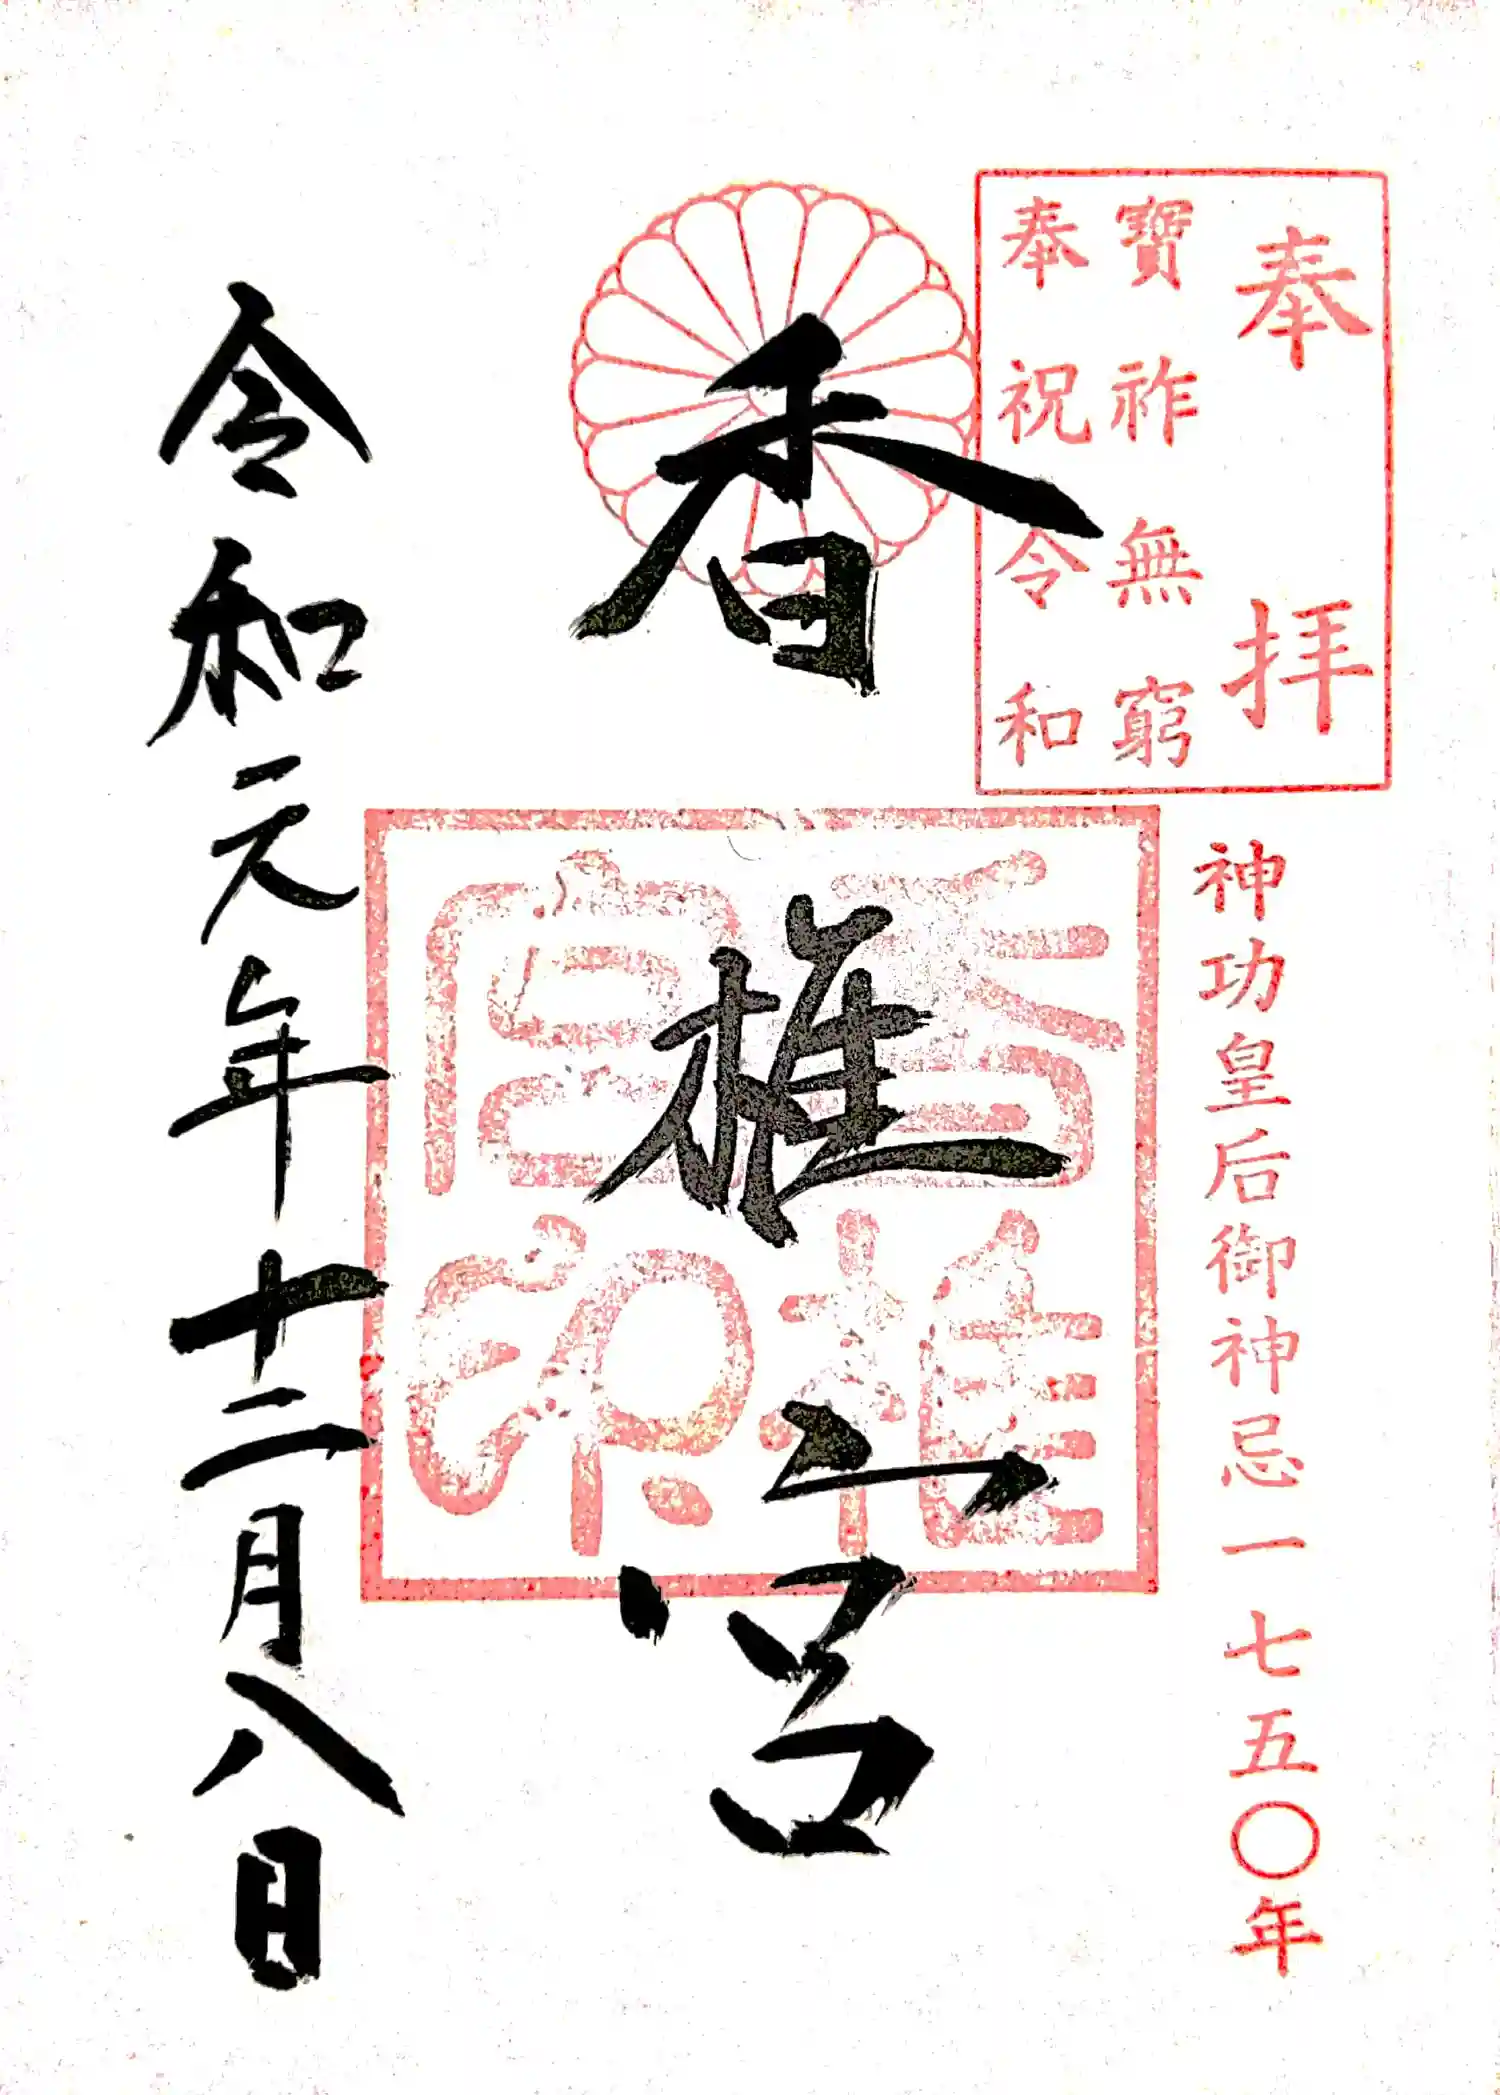 奉拝
寶祚無窮
奉祝令和
神功皇后御神忌一七五〇年
香椎宮
香椎宮印
令和元年十二月八日